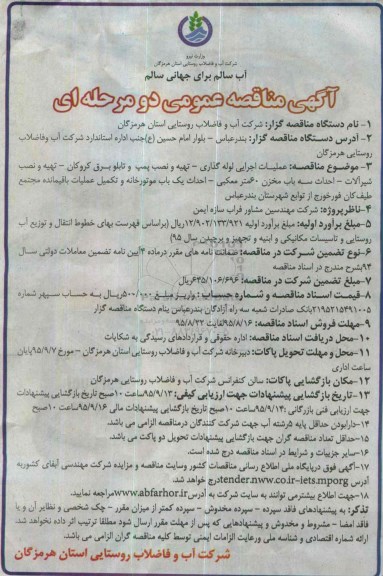 وزارت نیرو
شرکت آب و فاضلاب روستایی استان هرمزگان
آب سالم برای جهانی سالم
آگهی مناقصه عمومی دو مرحله ای
۱- نام دستگاه مناقصه گزار: شرکت آب و فاضلاب روستایی استان هرمزگان
۲- آدرس دستگاه مناقصه گزار: بندرعباس - بلوار امام حسین (ع)جنب اداره استاندارد شرکت آب وفاضلاب
روستایی هرمزگان
۳- موضوع مناقصه: عملیات اجرایی لوله گذاری - تهیه و نصب پمپ و تابلو برق کروکان - تهیه و نصب
شیرآلات - احداث سه باب مخزن ۶۰متر معکبی - احداث یک باب موتورخانه و تکمیل عملیات باقیمانده مجتمع
طیف کان فورخورج از توابع شهرستان بندرعباس
۴- ناظر پروژه: شرکت مهندسین مشاور فراب سازه ایمن
۵-مبلغ برآورد اولیه: مبلغ برآورد اولیه ۱۲/۹۰۲/۱۳۳/۹۲۱ریال (براساس فهرست بهای خطوط انتقال و توزیع آب
روستایی و تاسیسات مکانیکی و ابنیه و تجهیز و برچیدن سال ۹۵)
۶-نوع تضمین شرکت در مناقصه: ضمانت نامه های مقرر درماده ۴آیین نامه تضمین معاملات دولتی سال
۹۴بشرح مندرج در اسناد مناقصه
۷-مبلغ تضمین شرکت در مناقصه: ۶۴۵/۱۰۶/۶۹۶ریال
۸- قیمت اسناد مناقصه و شماره حساب: واریز مبلغ ۵۰۰/۱۰۰ریال به حساب سپهر شماره
۰۲۱۹۵۲۱۵۴۹۱۰۰۵بانک صادرات شعبه سه راه آزادگان بندرعباس بنام دستگاه مناقصه گزار
۹- مهلت فروش اسناد مناقصه: ۹۵/۸/۱۶لغایت ۹۵/۸/۲۲
۱۰-محل دریافت اسناد مناقصه: اداره حقوقی و قراردادهای رسیدگی به شکایات
۱۱-محل و مهلت تحویل پاکات: دبیرخانه شرکت آب و فاضلاب روستایی استان هرمزگان - مورخ ۹۵/۹/۷پایان
ساعت اداری
۱۲-مکان بازگشایی پاکات: سالن کنفرانس شرکت آب و فاضلاب روستایی هرمزگان
۱۳-تاریخ بازگشایی پیشنهادات جهت ارزیابی کیفی: ۹۵/۹/۱۳ساعت ۱۰صبح تاریخ بازگشایی پیشنهادات
جهت ارزیابی فنی بازرگانی :۹۵/۹/۱۴ساعت ۱۰صبح تاریخ بازگشایی پیشنهادات مالی ۹۵/۹/۱۶ساعت ۱۰صبح
۱۴-دارابودن حداقل پایه ۵رشته آب جهت شرکت کنندگان درمناقصه الزامی می باشد.
۱۵-حداقل تعداد مناقصه گران جهت بازگشایی پیشنهادات تحویل دو پاکت می باشد.
۱۶-سایر جزییات و شرایط در اسناد مناقصه درج شده است.
۱۷-آگهی فوق درپایگاه ملی اطلاع رسانی مناقصات کشور وسایت مناقصه و مزایده شرکت مهندسی آبفای کشوربه
آدرس tender.nww.co.ir-iets.mporgدرج خواهد شد.
۱۸-جهت اطلاع بیشترمی توانند به سایت شرکت به آدرس www.abfarhor.irمراجعه نمایید.
تذکر: به پیشنهادهای فاقد سپرده - سپرده مخدوش - سپرده کمتر از میزان مقرر - چک شخصی و نظایر آن و یا
فاقد امضا - مشروط و مخدوش و پیشنهادهایی که پس از مهلت مقرر ارسال شود مطلقا ترتیب اثر داده نخواهد شد.
ارائه شماره اقتصادی و شناسه ملی ورعایت الزامات ایمنی توسط کلیه مناقصه گران الزامی می باشد.
شرکت آب و فاضلاب روستایی استان هرمزگان